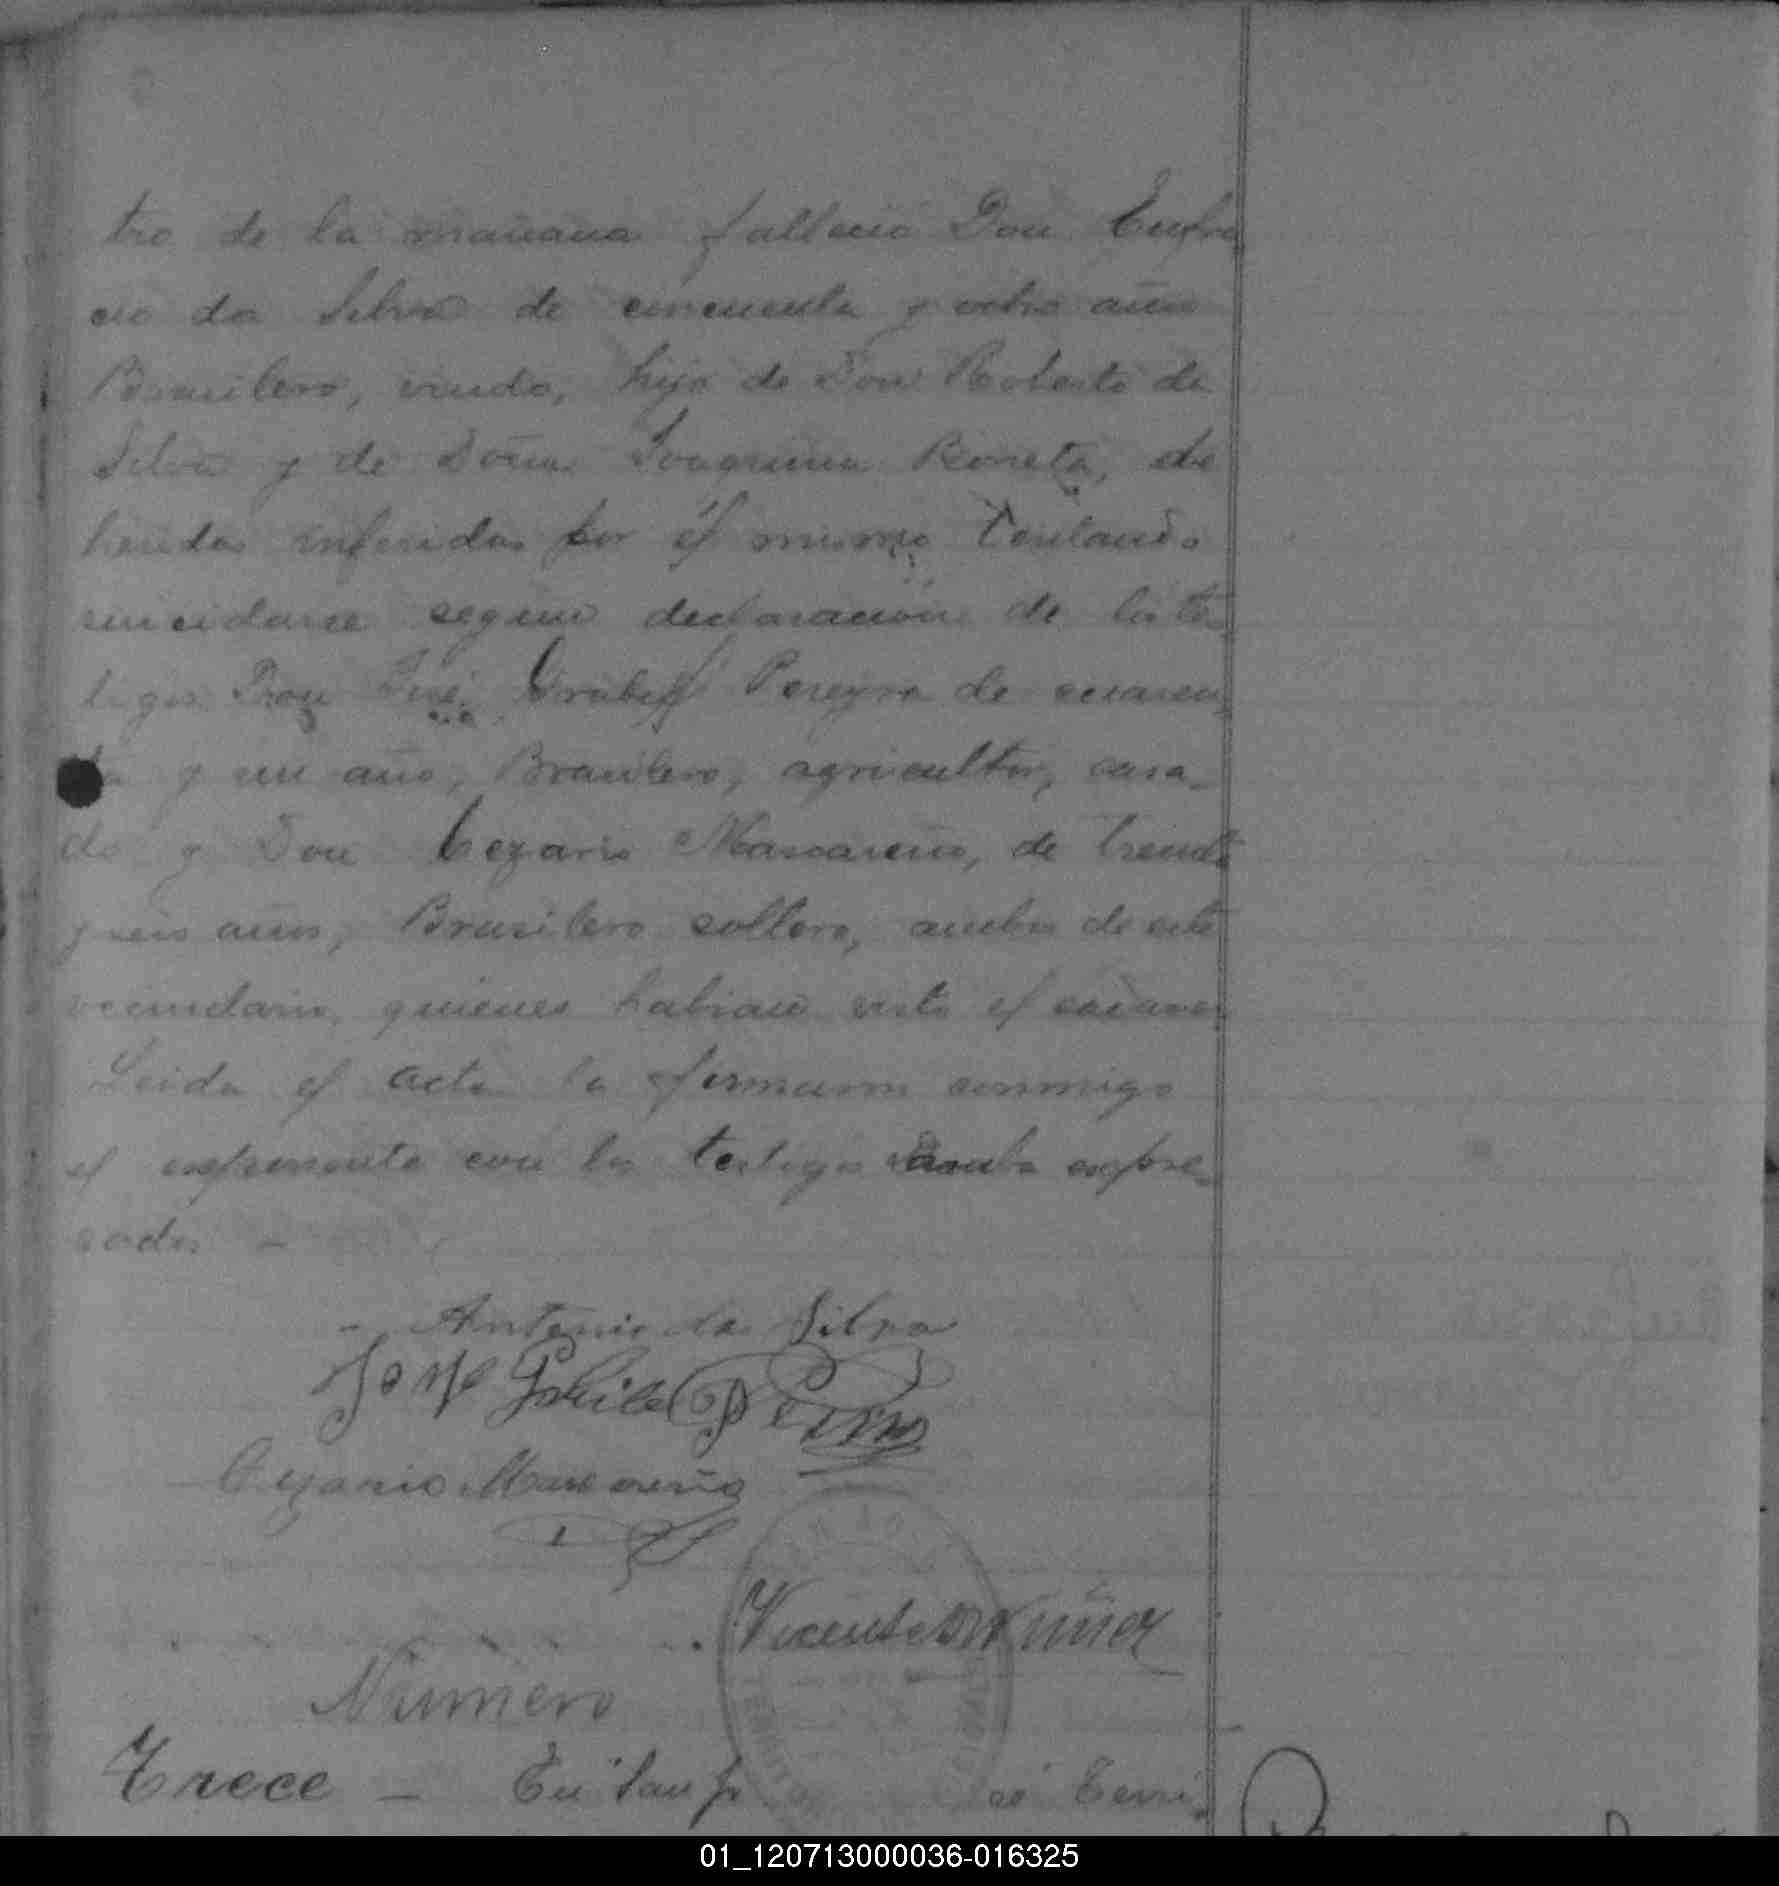 tro de la mañana falleció Don Eufra
cio da Silva de cincuenta y ocho años
Brasilero, viudo, hijo de Don Roberto da
Silva y de Doña Joaquina de
heridas inferidas por él mismo tentando
suicidarse según declaración de los tes
tigos Don José Pereyra de cuaren
ta y un año, Brasilero, agricultor, casa_
do y Don Cezario Mascareño, de treinta
y seis años, Brasilero soltero, ambos de este
vecindario, quienes habian visto el cadaver
Leida el acta la firmaron conmigo
el esponente con los testigos espre_
sados -
- Antonio da Silva
José
Cezario Mascareño
Vicente Nuñez
Número
Trece - En San Terri_
01_120713000036-016325